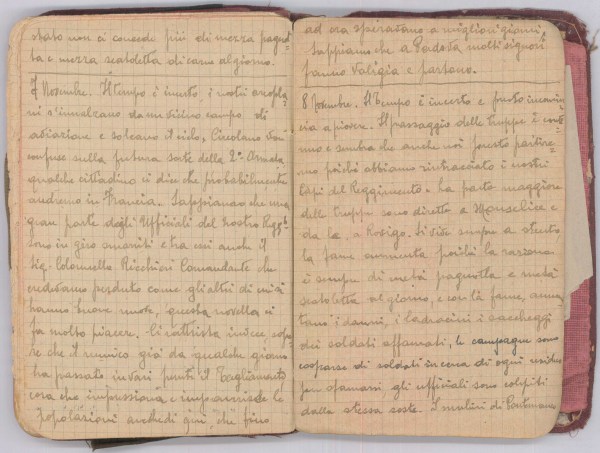 stato non ci concede più di mezza pagnot-
ta e mezza scatoletta di carne al giorno.
7 Novembre. Il tempo è incerto, i nostri aeropla-
ni s'innalzano da un vicino campo di
aviazione e solcano il cielo. Circolano voci
confuse sulla futura sorte della 2ª Armata,
qualche cittadino ci dice che probabilmente
andremo in Francia. Sappiamo che una
gran parte degli Ufficiali del nostro Regg.to
sono in giro smarriti e tra essi anche il
Sig. Colonnello Ricchieri Comandante che
credevamo perduto come gli altri di cui si
hanno buone nuove, questa novella ci
fa molto piacere. Ci rattrista invece sape-
re che il nemico già da qualche giorno
ha passato in vari punti il Tagliamento
cosa che impressiona e impaurisce le
popolazioni anche di qui, che fino
ad ora speravano a migliori giorni.
Sappiamo che a Padova molti signori
fanno valigia e partono.
8 Novembre. Il tempo è incerto e presto incomin-
cia a piovere. Il passaggio delle truppe è conti-
nuo e sembra che anche noi presto partire-
mo poiché abbiamo rintracciato i nostri
Capi del Reggimento. La parte maggiore
delle truppe sono dirette a Monselice e
da là, a Rovigo. Si vive sempre a stento,
la fame aumenta poiché la razione
è sempre di metà pagnotta e metà
scatoletta al giorno, e con la fame, aumen-
tano i danni, i ladrocini i saccheggi
dei soldati affamati, le campagne sono
cosparse di soldati in cerca di ogni residuo
per sfamarsi gli ufficiali sono colpiti
dalla stessa sorte. I mulini di